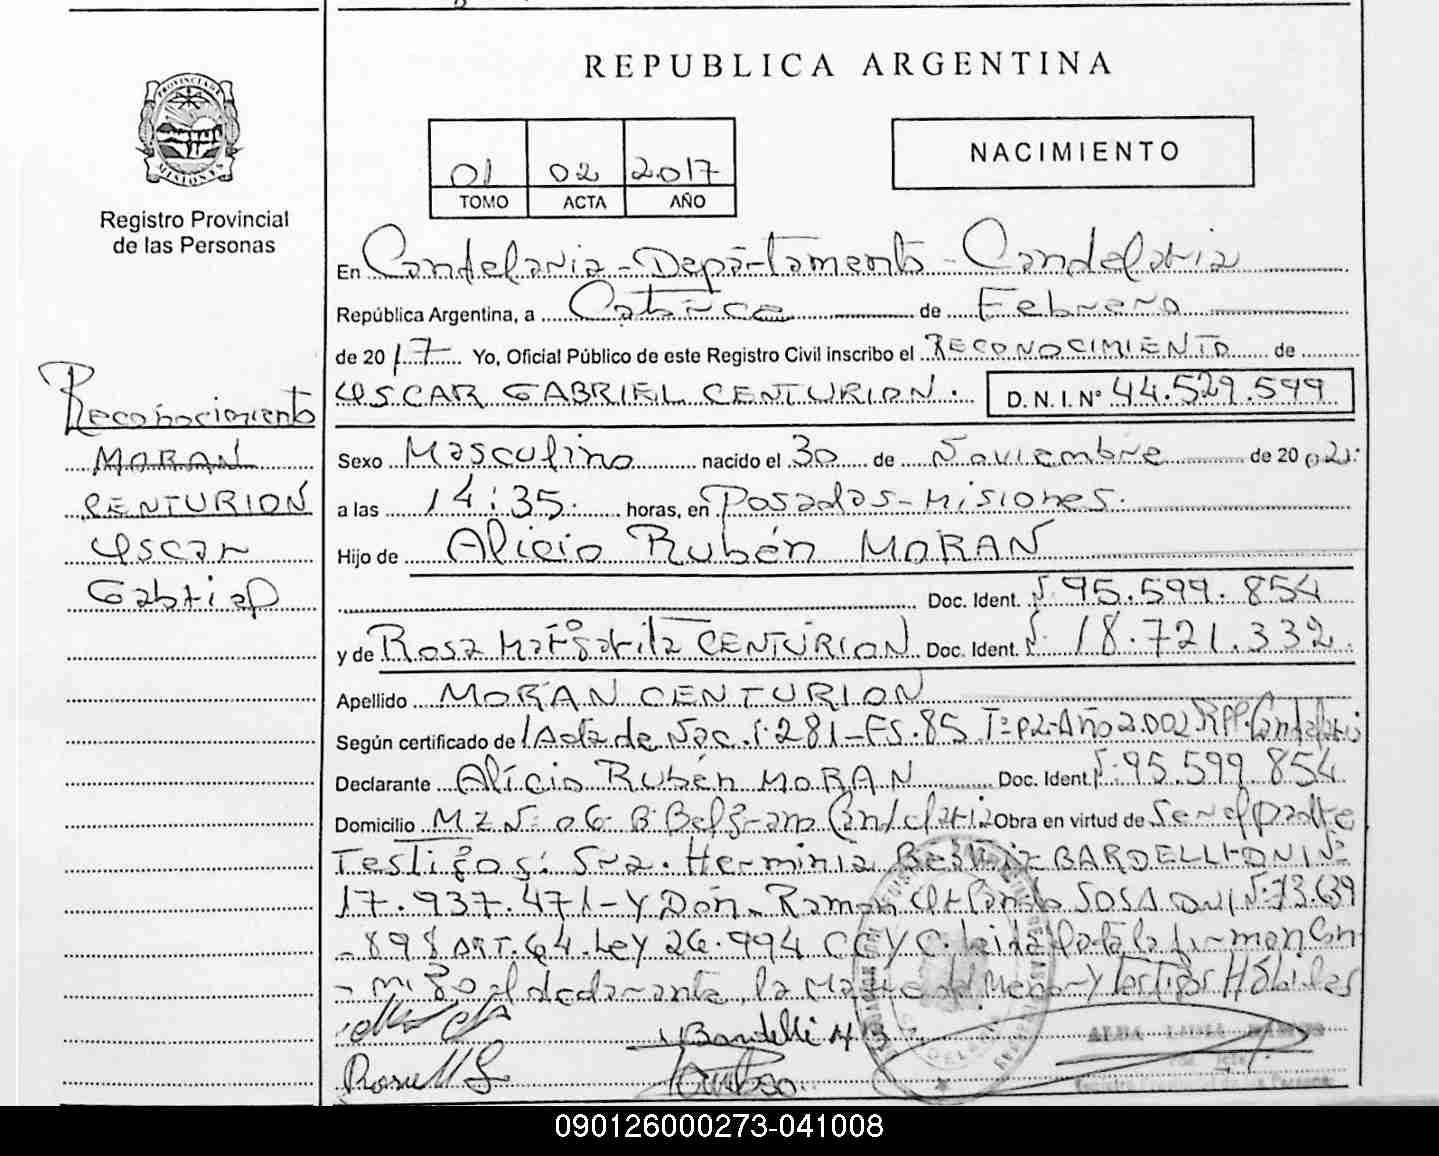 REPUBLICA ARGENTINA
PROVINCIA DE
MISIONES
Registro Provincial
de las Personas
01 02 2017
TOMO ACTA AÑO
NACIMIENTO
En Candelaria - Departamento - Candelaria
República Argentina, a Catorce de Febrero
de 2017 Yo, Oficial Público de este Registro Civil inscribo el RECONOCIMIENTO de
OSCAR GABRIEL CENTURION. D. N. I. Nº 44.529.599
Sexo Masculino nacido el 30 de Noviembre de 2002.
a las 14:35. horas, en Posadas - Misiones.
Hijo de Alicio Rubén MORAN
Doc. Ident. Nº 95.599.854
y de Rosa Margarita CENTURION Doc. Ident. Nº 18.721.332
Apellido MORAN CENTURION
Según certificado de Acta de Nac. Nº 281 - Fs. 85 Tº 02 - Año 2.002 RPP. Candelaria
Declarante Alicio Rubén MORAN Doc. Ident. Nº 95.599.854
Domicilio Mz Nº 06 Bº Belgrano Candelaria Obra en virtud de Ser el padre
Testigos: Sra. Herminia Beatriz BARDELLI - DNI Nº
17.937.471 - Y Don. Ramon Orlando SOSA DNI Nº 73.639
- 898 ART. 64. Ley 26.994 CCYC. leida la firman con
- migo el declarante, la Madre del Menor y Testigos Hábiles
Bardelli
Reconocimiento
MORAN
CENTURION
Oscar
Gabriel
090126000273-041008